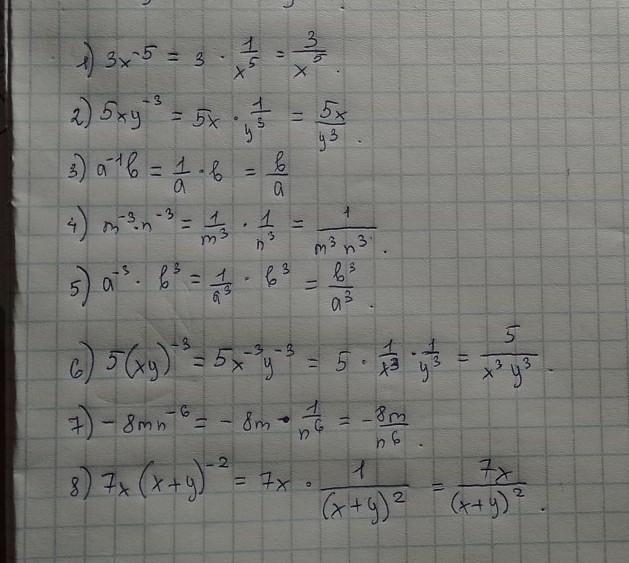 1) 3x⁻⁵ = 3 · 1/x⁵ = 3/x⁵.
2) 5xy⁻³ = 5x · 1/y³ = 5x/y³.
3) a⁻¹b = 1/a · b = b/a
4) m⁻³·n⁻³ = 1/m³ · 1/n³ = 1/(m³n³).
5) a⁻³ · b³ = 1/a³ · b³ = b³/a³.
6) 5(xy)⁻³ = 5x⁻³y⁻³ = 5 · 1/x³ · 1/y³ = 5/(x³y³).
7) -8mn⁻⁶ = -8m · 1/n⁶ = -8m/n⁶.
8) 7x(x+y)⁻² = 7x · 1/(x+y)² = 7x/(x+y)².